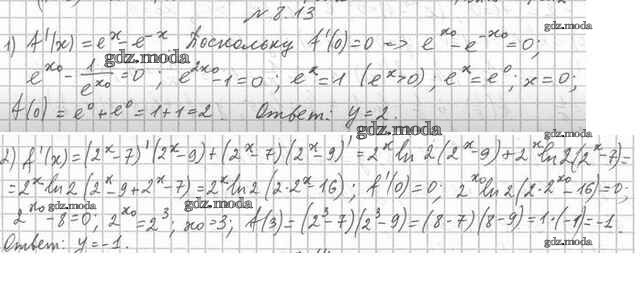 № 8.13
1) f'(x) = e^x - e^-x. Поскольку f'(0) = 0 => e^x₀ - e^-x₀ = 0;
gdz.moda gdz.moda
e^x₀ - 1/e^x₀ = 0; e^2x₀ - 1 = 0; e^x = 1 (e^x > 0); e^x = e^0; x = 0;
gdz.moda
f(0) = e^0 + e^0 = 1 + 1 = 2. Ответ: y = 2.
gdz.moda
2) f'(x) = (2^x - 7)'(2^x - 9) + (2^x - 7)(2^x - 9)' = 2^x ln 2 (2^x - 9) + 2^x ln 2 (2^x - 7) =
gdz.moda
= 2^x ln 2 (2^x - 9 + 2^x - 7) = 2^x ln 2 (2·2^x - 16); f'(0) = 0; 2^x₀ ln 2 (2·2^x₀ - 16) = 0;
gdz.moda gdz.moda gdz.moda
2^x₀ - 8 = 0; 2^x₀ = 2^3; x₀ = 3; f(3) = (2^3 - 7)(2^3 - 9) = (8 - 7)(8 - 9) = 1·(-1) = -1.
Ответ: y = -1.
gdz.moda